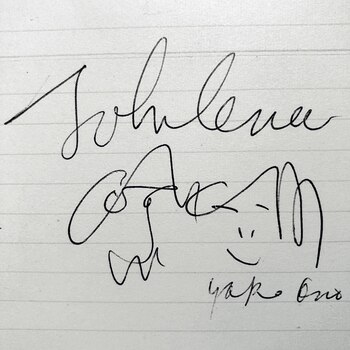 John Lennon
yoko Ono